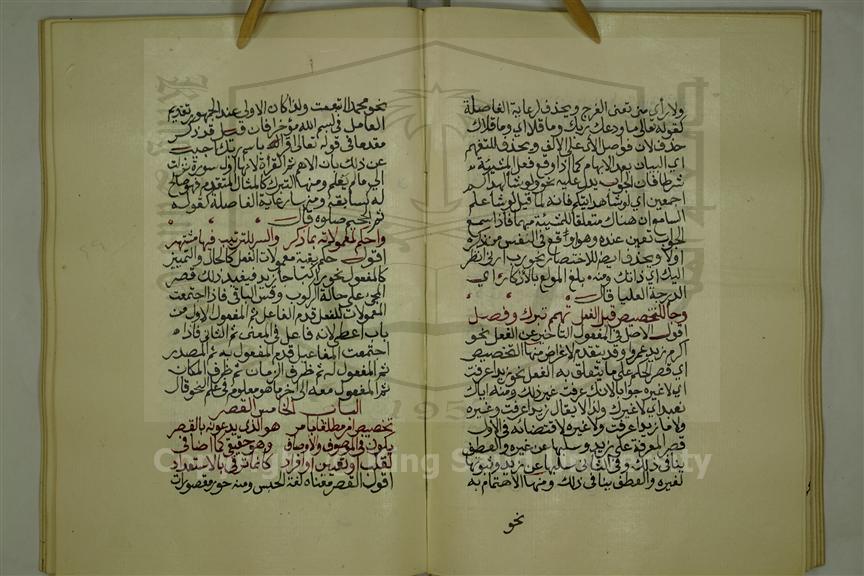 ولا رأى مني تعني الفرج ويحذف رعاية الفاصلة
كقوله تعالى ما ودعك ربك وما قلا اي وما قلاك
حذف لان فواصل الآي على الالف ويحذف للتفهيم
اي البيان بعد الابهام كما اذا وقع فعل المشيئة
شرطا فان الجواب يدل عليه نحو لو شاء لهداكم
اجمعين اي لو شاء هدايتكم فانه لما قيل لو شاء علم
السامع ان هناك متعلقا للمشيئة مبهما فاذا سمع
الجواب تعين عنده وهو اوقع في النفس من ذكره
اولا ويحذف ايضا للاختصار نحو رب ارني انظر
اليك اي ذاتك ومنه بلغ المولع بالاذكار اي
الدرجة العليا قال
وجا للتخصيص قبل الفعل تهمم تبرك وفصل
اقول الاصل في المفعول التاخير عن الفعل نحو
اكرم زيد عمرا وقد يقدم لاغراض منها التخصيص
اي قصر الحكم على ما يتعلق به الفعل نحو زيدا عرفت
اي لا غيره جوابا لانك عرفت غير ذلك ومنه اياك
نعبد اي لا غيرك ولذا لا يقال زيدا عرفت وغيره
ولا ما زيدا عرفت ولا غيره لاقتضائه في الاول
قصر المعرفة على زيد وسلبها عن غيره والعطف
ينافي ذلك وفي الثاني سلبها عن زيد وثبوتها
لغيره والعطف ينافي ذلك ومنها الاهتمام به
نحو
نحو محمدا اتبعت ولذا كان الاولى عند الجمهور تقديم
العامل في بسم الله مؤخرا فان قيل قد ذكر
مقدما في قوله تعالى اقرا باسم ربك اجيب
عن ذلك بان الاهم ثم القراة لانها اول سورة نزلت
الى ما لم يعلم ومنها التبرك كالمثال المتقدم فهو صالح
له كسابقه ومنها رعاية الفاصلة كقوله
ثم الجحيم صلوه قال
واحكم لمعمولاته بما ذكر والسر للترتيب فيها مشتهر
اقول حكم بقية معمولات الفعل كالحال والتمييز
كالمفعول نحو راكبا جا زيد فيفيد ذلك قصر
المجيء على حالة الركوب وقس الباقي فاذا اجتمعت
المعمولات للفعل قدم الفاعل ثم المفعول الاول من
باب اعطى لانه فاعل في المعنى ثم الثاني فاذا
اجتمعت المفاعيل قدم المفعول به ثم المصدر
ثم المفعول له ثم ظرف الزمان ثم ظرف المكان
ثم المفعول معه الى اخر ما هو معلوم في علم النحو قال
الباب الخامس القصر
تخصيص امر مطلقا بامر هو الذي يدعونه بالقصر
يكون في الموصوف والاوصاف وهو حقيقي كما اضافي
لقلب او تعيين او افراد كانما ترقى بالاستعداد
اقول القصر معناه لغة الحبس ومنه حور مقصورات
1957